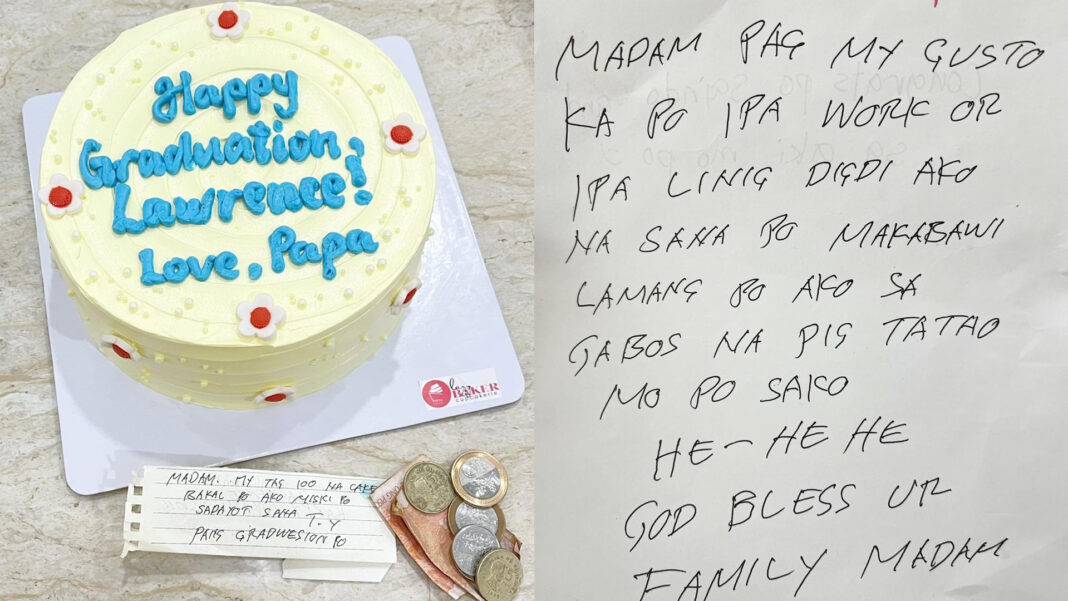 Happy
Graduation,
Lawrence!
Love, Papa
BAKER
cupcakerie
MADAM. MY TAG 100 NA CAKE
BAKAL PO AKO MISKI PO
SADAYOT SANA T.Y
PANG GRADWESION PO
MADAM PAG MY GUSTO
KA PO IPA WORK OR
IPA LINIG DIGDI AKO
NA SANA PO MAKABAWI
LAMANG PO AKO SA
GABOS NA PIG TATAO
MO PO SAKO
HE-HE HE
GOD BLESS UR
FAMILY MADAM